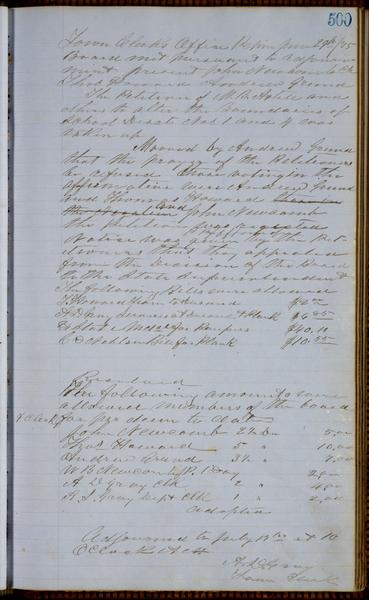 500
Town Clerk's Office
Board met pursuant to adjourn
ment present John Newcomb
Thos Howard Andrew Grund
The Petition of M. B. and
others to alter the Boundaries of
School Dists No 1 and 4 was
taken up
Moved by Andrew Grund
that the prayer of the Petitioners
be refused those voting in the
affirmative were Andrew Grund
and Thomas Howard
the Negative John Newcomb
the petition was rejected
Notice was given by the Pet-
itioners that they appealed
from the decision of the Board
to the State Superintendent
The following Bills were allowed
T Howard
A D Gray Services & Plank
for Scrapers $40.10
Bill for Plank
Resolved
The following amounts were
allowed members of the board
& Clerk for per diem to date
John Newcomb 2½ Days 5.00
Thos Howard 5 " 10.00
Andrew Grund 3½ " 7.00
W B Newcomb 1 Day 2.00
A D Gray Clk 2 " 4.00
Gray Dept Clk 1 " 2.00
Adopted
Adjourned to July 13th at 10
O'Clock A.M.
A D Gray
Town Clerk